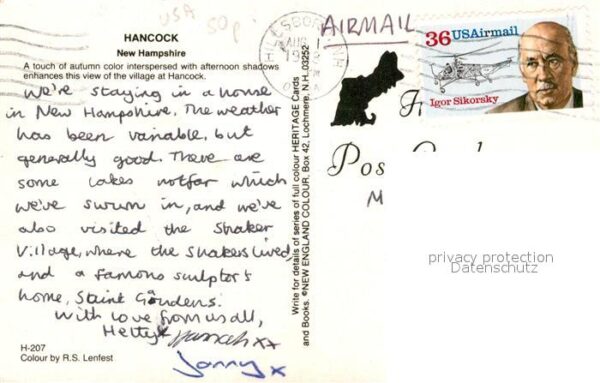 USA
50p
HANCOCK
New Hampshire
A touch of autumn color interspersed with afternoon shadows
enhances this view of the village at Hancock.
We're staying in a house
in New Hampshire. The weather
has been variable, but
generally good. There are
some lakes not far which
we've swum in, and we've
also visited the Shaker
Village, where the Shakers lived,
and a famous sculptor's
home, Saint Gaudens.
With love from us all,
Hetty x Hannah xx
Jonny x
H-207
Colour by R.S. Lenfest
Write for details of series of full colour HERITAGE Cards
and Books. ©NEW ENGLAND COLOUR, Box 42, Lochmere, N.H. 03252
AUG
NH
AIRMAIL
36 USAirmail
Igor Sikorsky
Pos
M
privacy protection
Datenschutz